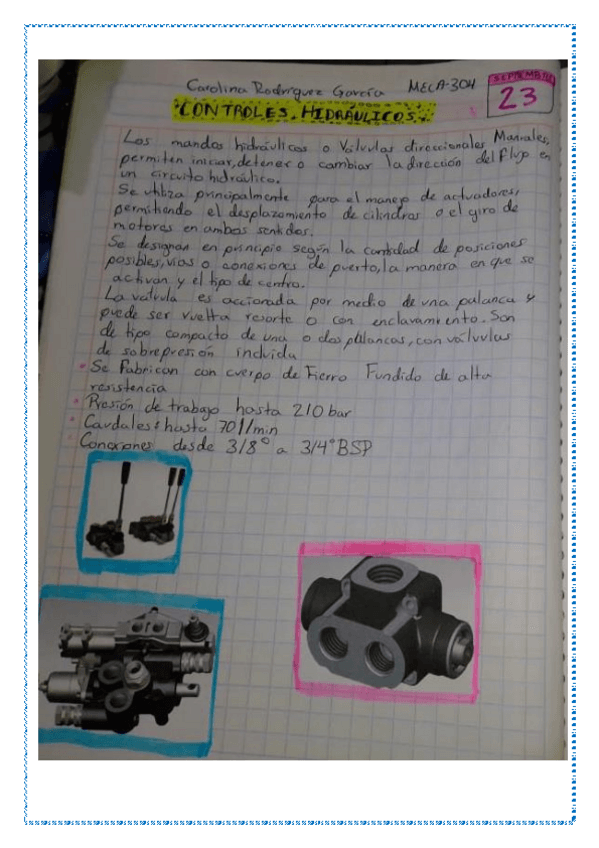 Carolina Rodríguez García MECA-304
SEPTIEMBRE
23
CONTROLES HIDRÁULICOS.
Los mandos hidráulicos o Válvulas direccionales Manuales,
permiten iniciar, detener o cambiar la dirección del flujo en
un circuito hidráulico.
Se utiliza principalmente para el manejo de actuadores,
permitiendo el desplazamiento de cilindros o el giro de
motores en ambos sentidos.
Se designan en principio según la cantidad de posiciones
posibles, vías o conexiones de puerto, la manera en que se
activan y el tipo de centro.
La valvula es accionada por medio de una palanca y
puede ser vuelta resorte o con enclavamiento. Son
de tipo compacto de una o dos palancas, con válvulas
de sobrepresión incluida
• Se Fabrican con cuerpo de Fierro Fundido de alta
resistencia
• Presión de trabajo hasta 210 bar
• Caudales: hasta 70 l/min
• Conexiones desde 3/8° a 3/4° BSP